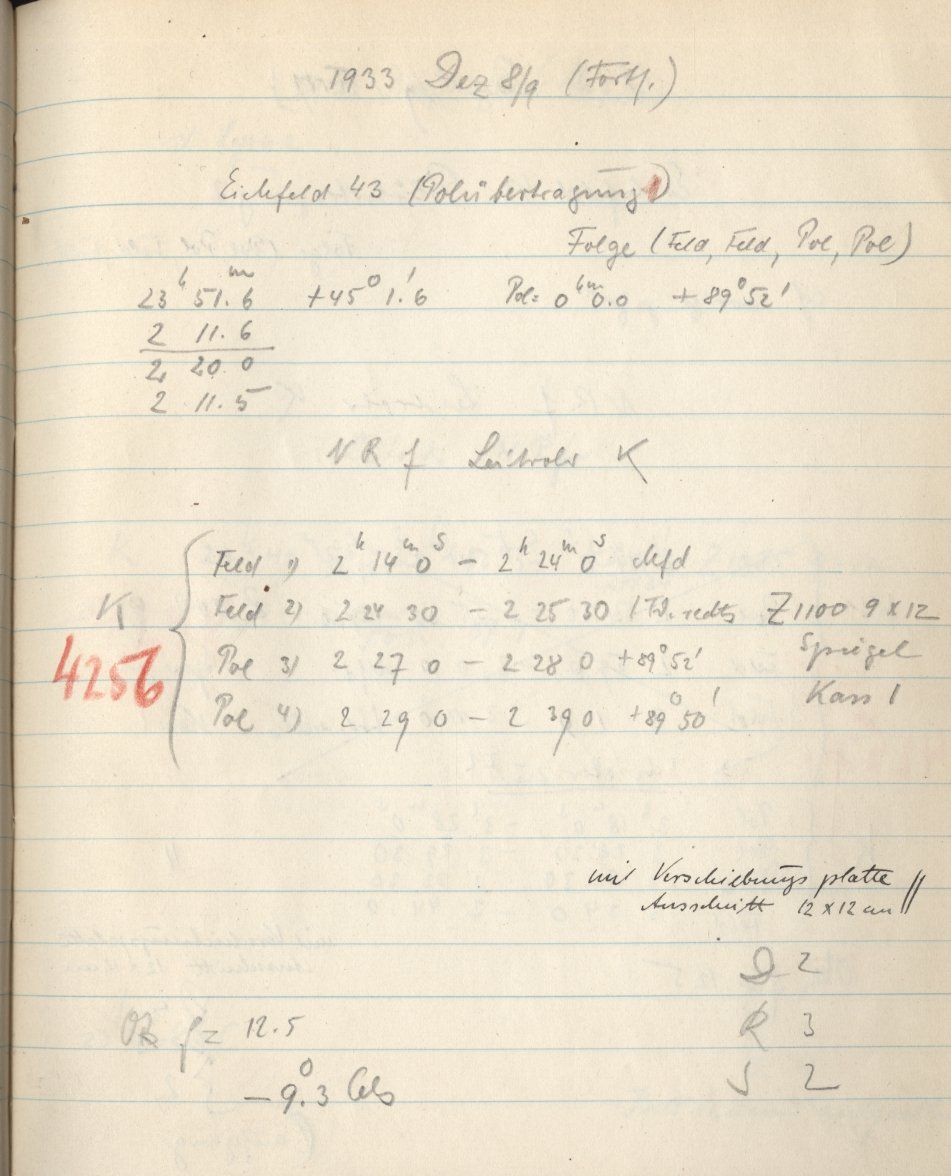 1933 Dez 8/9 (Forts.)
Eichfeld 43 (Polübertragung)
Folge (Feld, Feld, Pol, Pol)
23ʰ 51.ᵐ6 +45° 1.′6 Pol: 0ʰ 0.ᵐ0 +89° 52′
2 11.6
2 20.0
2 11.5
NR f Leitrohr K
Feld 1) 2ʰ 14ᵐ 0ˢ – 2ʰ 24ᵐ 0ˢ
Feld 2) 2 24 30 – 2 25 30 rechts Z 1100 9 x 12
K
Pol 3) 2 27 0 – 2 28 0 +89° 52′ Spiegel
4256
Pol 4) 2 29 0 – 2 39 0 +89° 50′ Kass 1
mit Verschiebungsplatte
Ausschnitt 12 x 12 cm
D 2
OR f = 12.5 R 3
–9.°3 Cels S 2